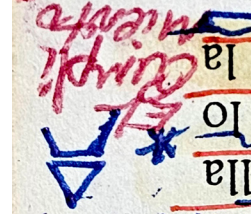 lla
lo
la
El
Cumpli
miento